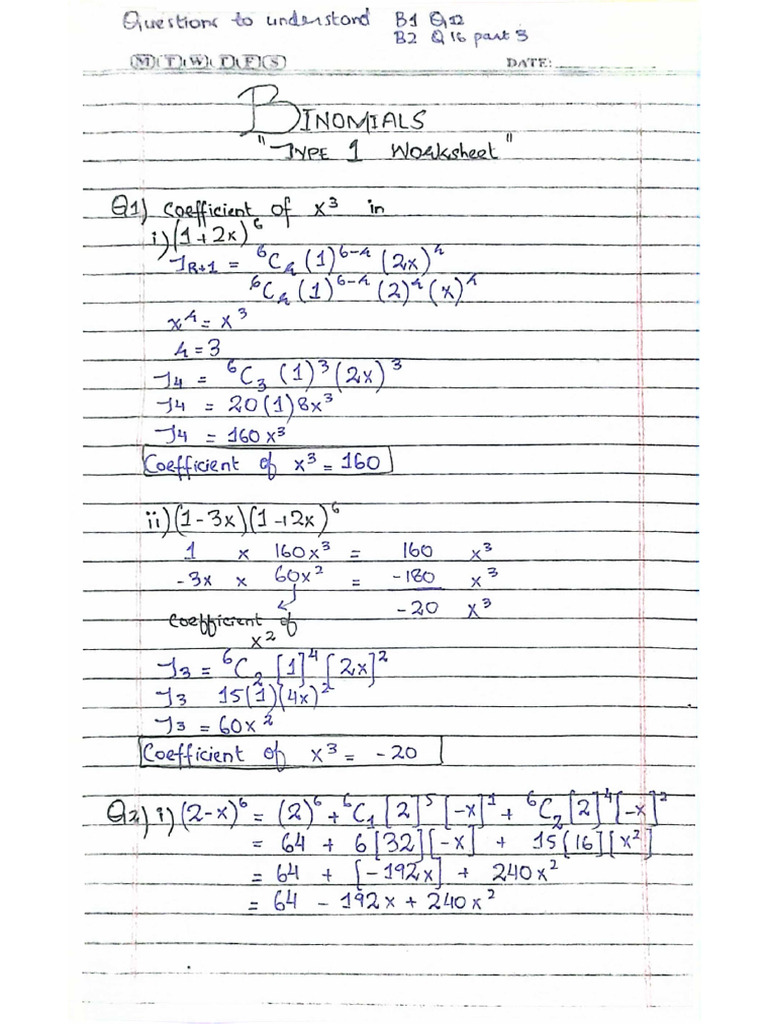 Questions to understand B1 Q12
B2 Q16 part 3
M T W T F S DATE:
BINOMIALS
"TYPE 1 Worksheet"
Q1) Coefficient of x³ in
i) (1+2x)⁶
T_{R+1} = ⁶C_r (1)^{6-r} (2x)^r
⁶C_r (1)^{6-r} (2)^r (x)^r
x^r = x³
r = 3
T₄ = ⁶C₃ (1)³ (2x)³
T₄ = 20(1)8x³
T₄ = 160x³
Coefficient of x³ = 160
ii) (1-3x)(1+2x)⁶
1 x 160x³ = 160 x³
-3x x 60x² = -180 x³
-20 x³
Coefficient of
x²
T₃ = ⁶C₂ [1]⁴ [2x]²
T₃ 15(1)(4x)²
T₃ = 60x²
Coefficient of x³ = -20
Q2) i) (2-x)⁶ = (2)⁶ + ⁶C₁ [2]⁵ [-x]¹ + ⁶C₂ [2]⁴ [-x]²
= 64 + 6[32][-x] + 15[16][x²]
= 64 + [-192x] + 240x²
= 64 - 192x + 240x²